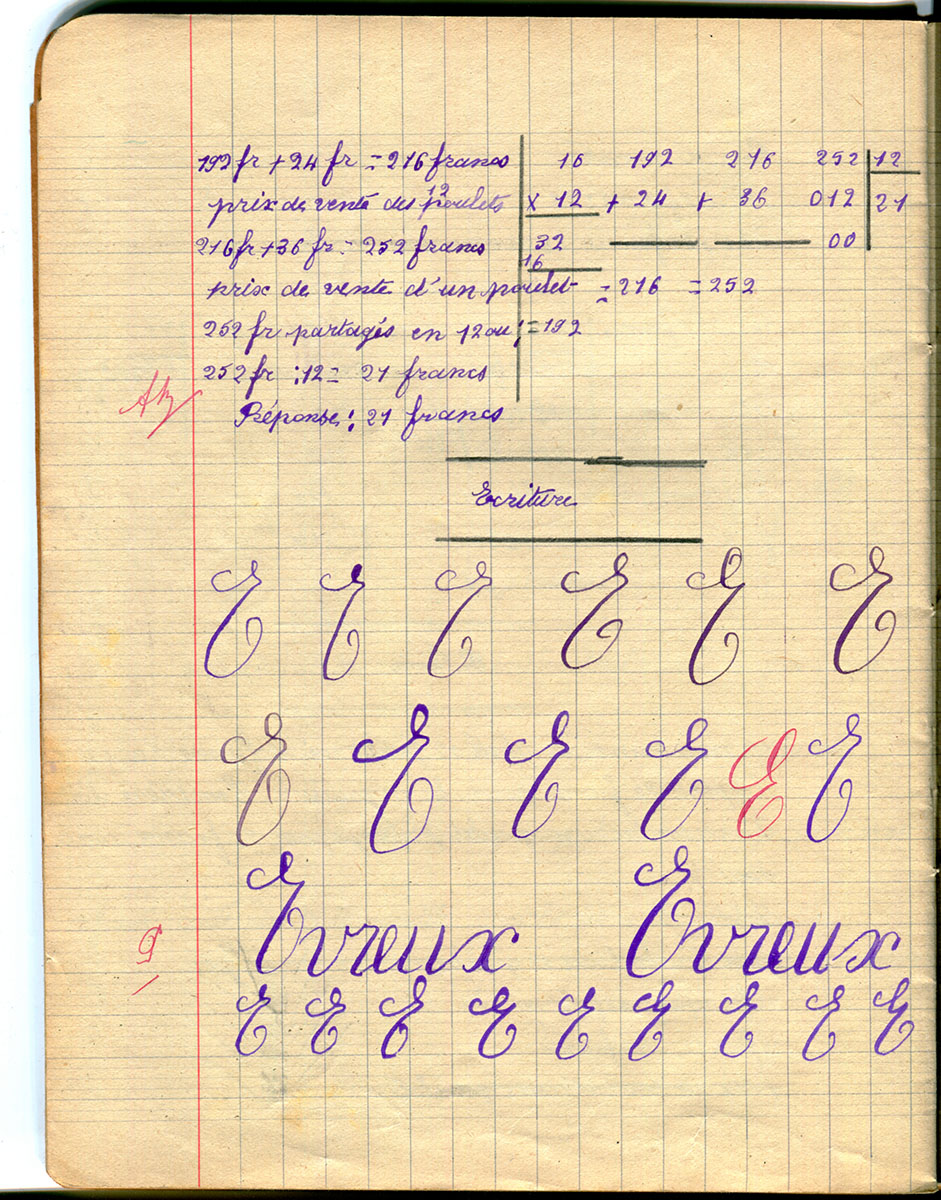 192 fr + 24 fr = 216 francs
prix de vente des 12 poulets
216 fr + 36 fr = 252 francs
prix de vente d'un poulet
252 fr partagés en 12 ou :
252 fr : 12 = 21 francs
Réponse : 21 francs
16 192 216 252 12
x 12 + 24 + 36 012 21
32 00
16
= 216 = 252
= 192
Ecriture
E E E E E E
E E E E E E
Evreux Evreux
E E E E E E E E E